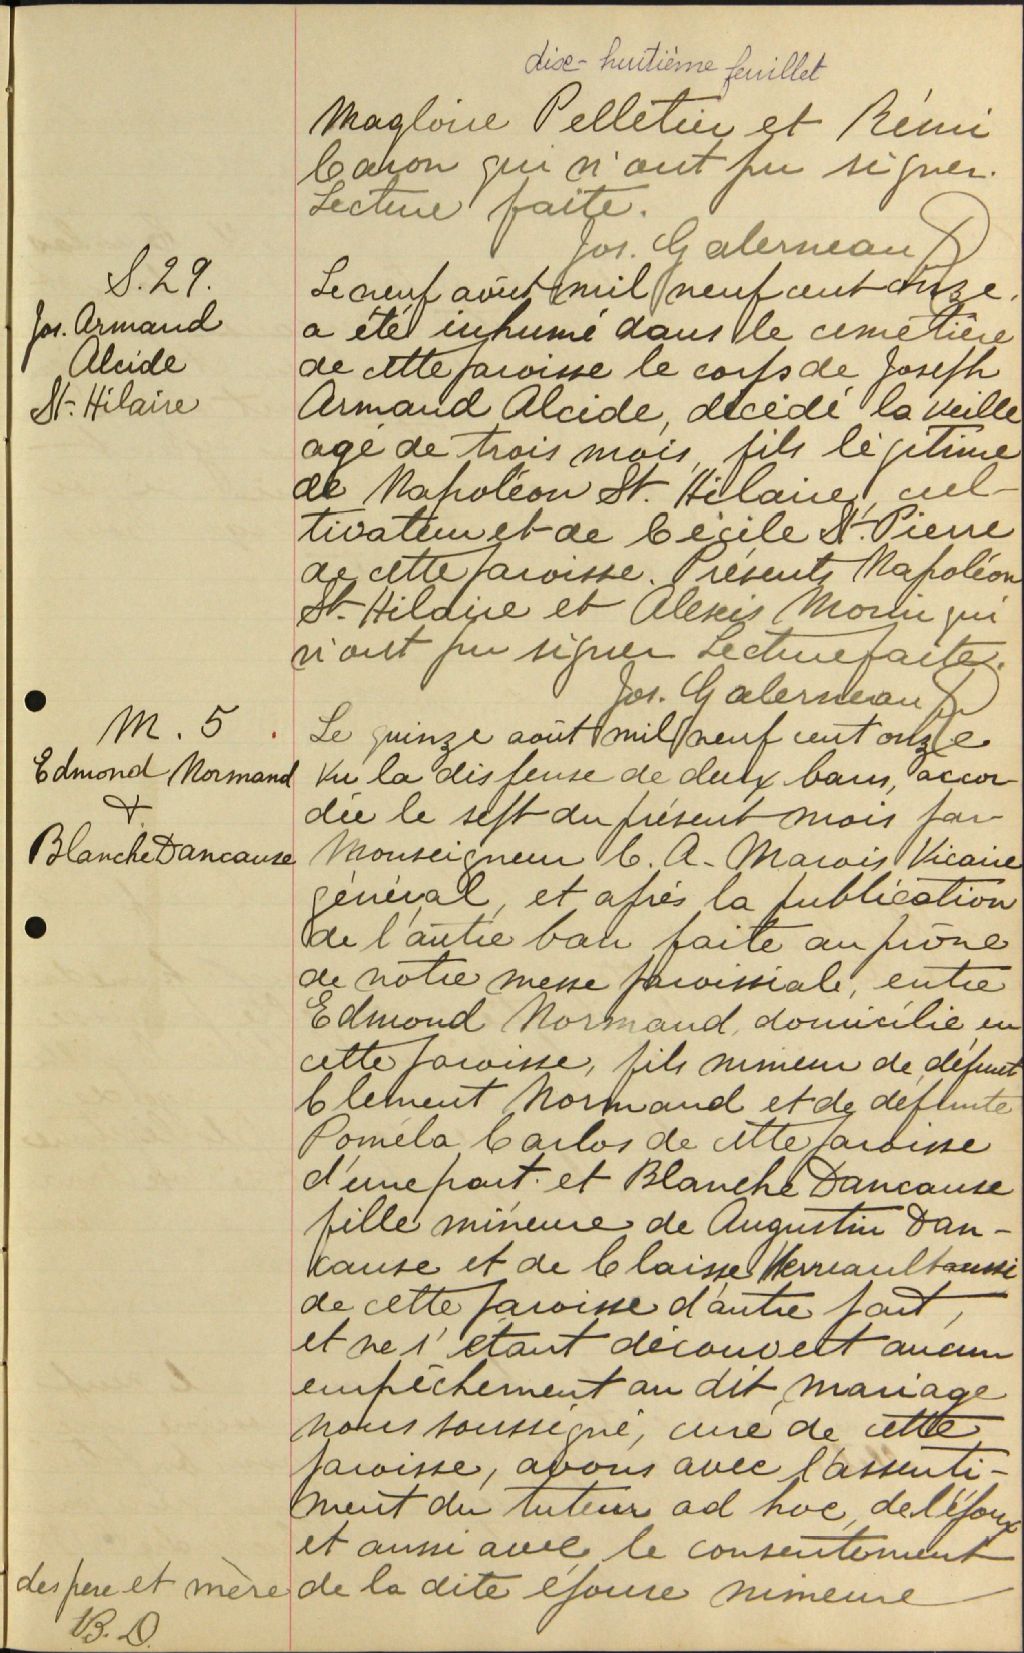 dix-huitième feuillet
Magloire Pelletier et Rémi
Caron qui n'ont pu signer.
Lecture faite.
Jos. Galerneau Ptr
S. 29.
Jos. Armand
Alcide
St-Hilaire
Le neuf août mil neuf cent onze
a été inhumé dans le cimetière
de cette paroisse le corps de Joseph
Armand Alcide, décédé la veille
agé de trois mois, fils légitime
de Napoléon St. Hilaire, cul-
tivateur et de Cécile St. Pierre
de cette paroisse. Présents Napoléon
St-Hilaire et Alexis Morin qui
n'ont pu signer Lecture faite.
Jos. Galerneau Ptr
M. 5
Edmond Normand
&
Blanche Dancause
Le quinze août mil neuf cent onze
Vu la dispense de deux bans, accor
dée le sept du présent mois par
Monseigneur C. A. Marois Vicaire
général, et après la publication
de l'autre ban faite au prône
de notre messe paroissiale, entre
Edmond Normand, domicilié en
cette paroisse, fils mineur de défunt
Clement Normand et de défunte
Poméla Carlos de cette paroisse
d'une part. et Blanche Dancause
fille mineure de Augustin Dan-
cause et de Claisse aussi
de cette paroisse d'autre part,
et ne s'étant découvert aucun
empêchement au dit mariage
nous soussigné, curé de cette
paroisse, avons avec l'assenti-
ment du tuteur ad hoc, de l'époux
et aussi avec le consentement
des pere et mère
B. D.
de la dite épouse mineure